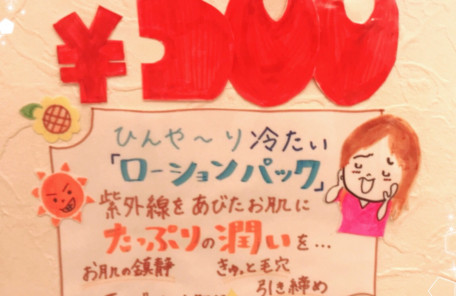 ¥500
ひんや～り冷たい
「ローションパック」
紫外線をあびたお肌に
たっぷりの潤いを…
お肌の鎮静 きゅっと毛穴
引き締め